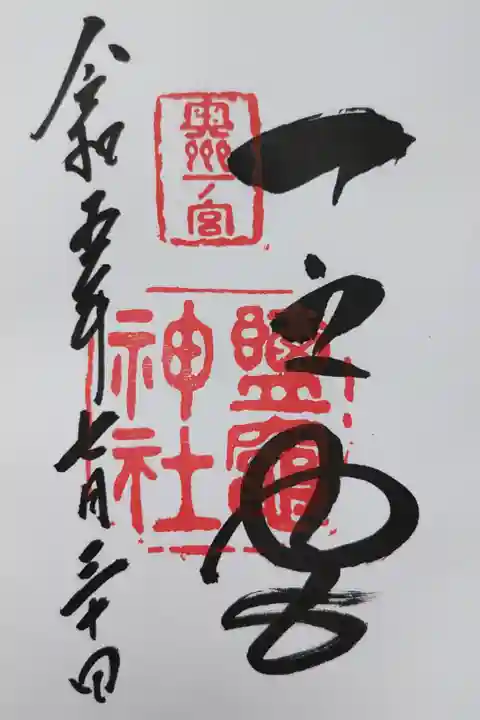 一之宮
奥州
一ノ宮
鹽竈
神社
令和五年七月三十日